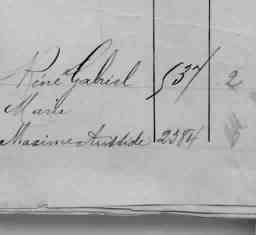 Réné Gabriel 537 2
Marie
Maxime Aristide 2384